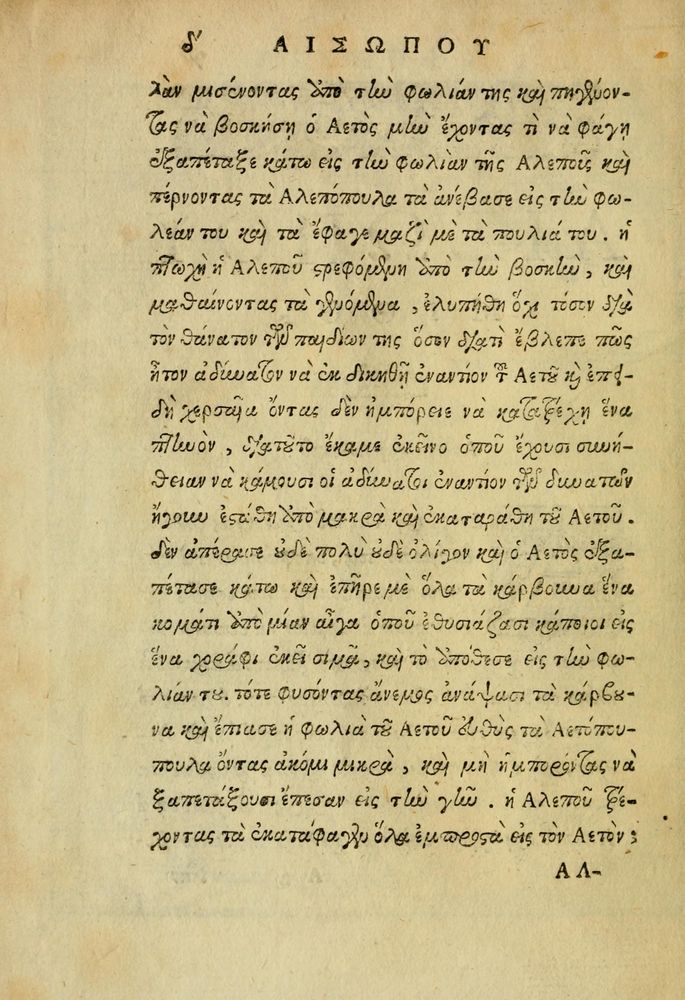 δ' ΑΙΣΩΠΟΥ
λὰν μισεύοντας ἀπὸ τὴν φωλιάν της καὶ πηγαίνον-
τας νὰ βοσκήσῃ ὁ Αετὸς μὴν ἔχοντας τὶ νὰ φάγῃ
ἐξαπέταξε κάτω εἰς τὴν φωλιὰν τῆς Αλεποῦς καὶ
πέρνοντας τὰ Αλεπόπουλα τὰ ἀνέβασε εἰς τὴν φω-
λεάν του καὶ τὰ ἔφαγε μαζὶ μὲ τὰ πουλιά του. ἡ
πτωχὴ ἡ Αλεποῦ στρεφόμενη ἀπὸ τὴν βοσκὴν, καὶ
μαθαίνοντας τὰ γενόμενα, ἐλυπήθη ὄχι τόσον διὰ
τὸν θάνατον τῶν παιδίων της ὅσον διατὶ ἔβλεπε πῶς
ἦτον ἀδύνατον νὰ ἐκδικηθῇ ἐναντίον τοῦ Αετοῦ καὶ ἐπει-
δὴ χερσαῖα ὄντας δὲν ἠμπόρειε νὰ κατατρέχῃ ἕνα
πτηνὸν, διατοῦτο ἔκαμε ἐκεῖνο ὁποῦ ἔχουσι συνή-
θειαν νὰ κάμουσι οἱ ἀδύνατοι ἐναντίον τῶν δυνατῶν
ἤγουν ἐστάθη ἀπὸ μακρὰ καὶ ἐκαταράθη τοῦ Αετοῦ.
δὲν ἀπέρασε οὐδὲ πολὺ οὐδὲ ὀλίγον καὶ ὁ Αετὸς ἐξα-
πέτασε κάτω καὶ ἐπῆρε μὲ ὅλα τὰ κάρβουνα ἕνα
κομάτι ἀπὸ μίαν αἶγα ὁποῦ ἐθυσιάζασι κάποιοι εἰς
ἕνα χωράφι ἐκεῖ σιμᾶ, καὶ τὸ ἀπόθεσε εἰς τὴν φω-
λιάν του. τότε φυσόντας ἄνεμος ἀνάψασι τὰ κάρβου-
να καὶ ἔπιασε ἡ φωλιὰ τοῦ Αετοῦ εὐθὺς τὰ Αετόπου-
πουλα ὄντας ἀκόμι μικρὰ, καὶ μὴ ἠμπορόντας νὰ
ξαπετάξουσι ἔπεσαν εἰς τὴν γῆν. ἡ Αλεποῦ τρέ-
χοντας τὰ ἐκατάφαγεν ὅλα ἐμπροστὰ εἰς τὸν Αετόν;
ΑΛ-